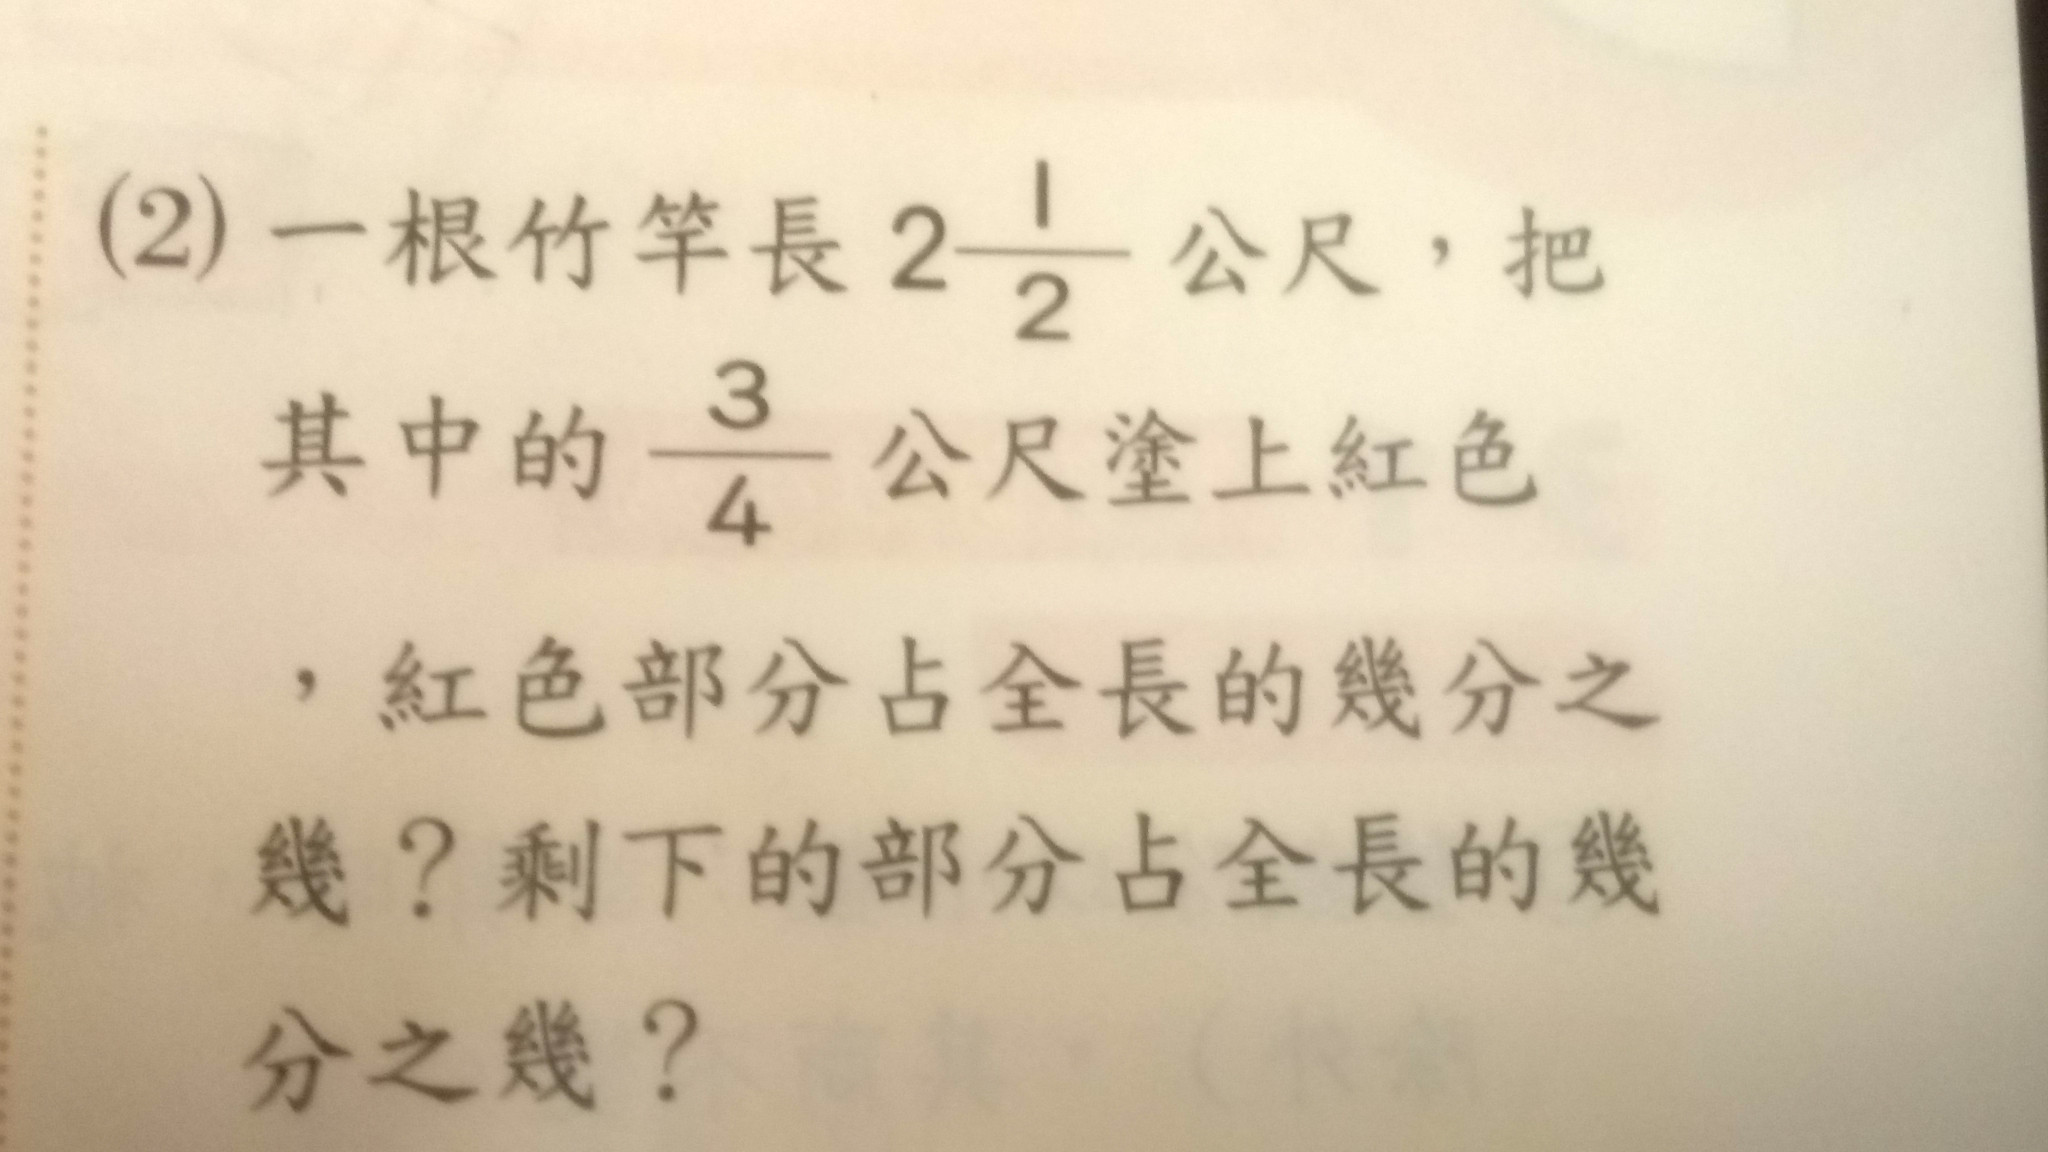 (2) 一根竹竿長 2 1/2 公尺，把
其中的 3/4 公尺塗上紅色
，紅色部分占全長的幾分之
幾？剩下的部分占全長的幾
分之幾？